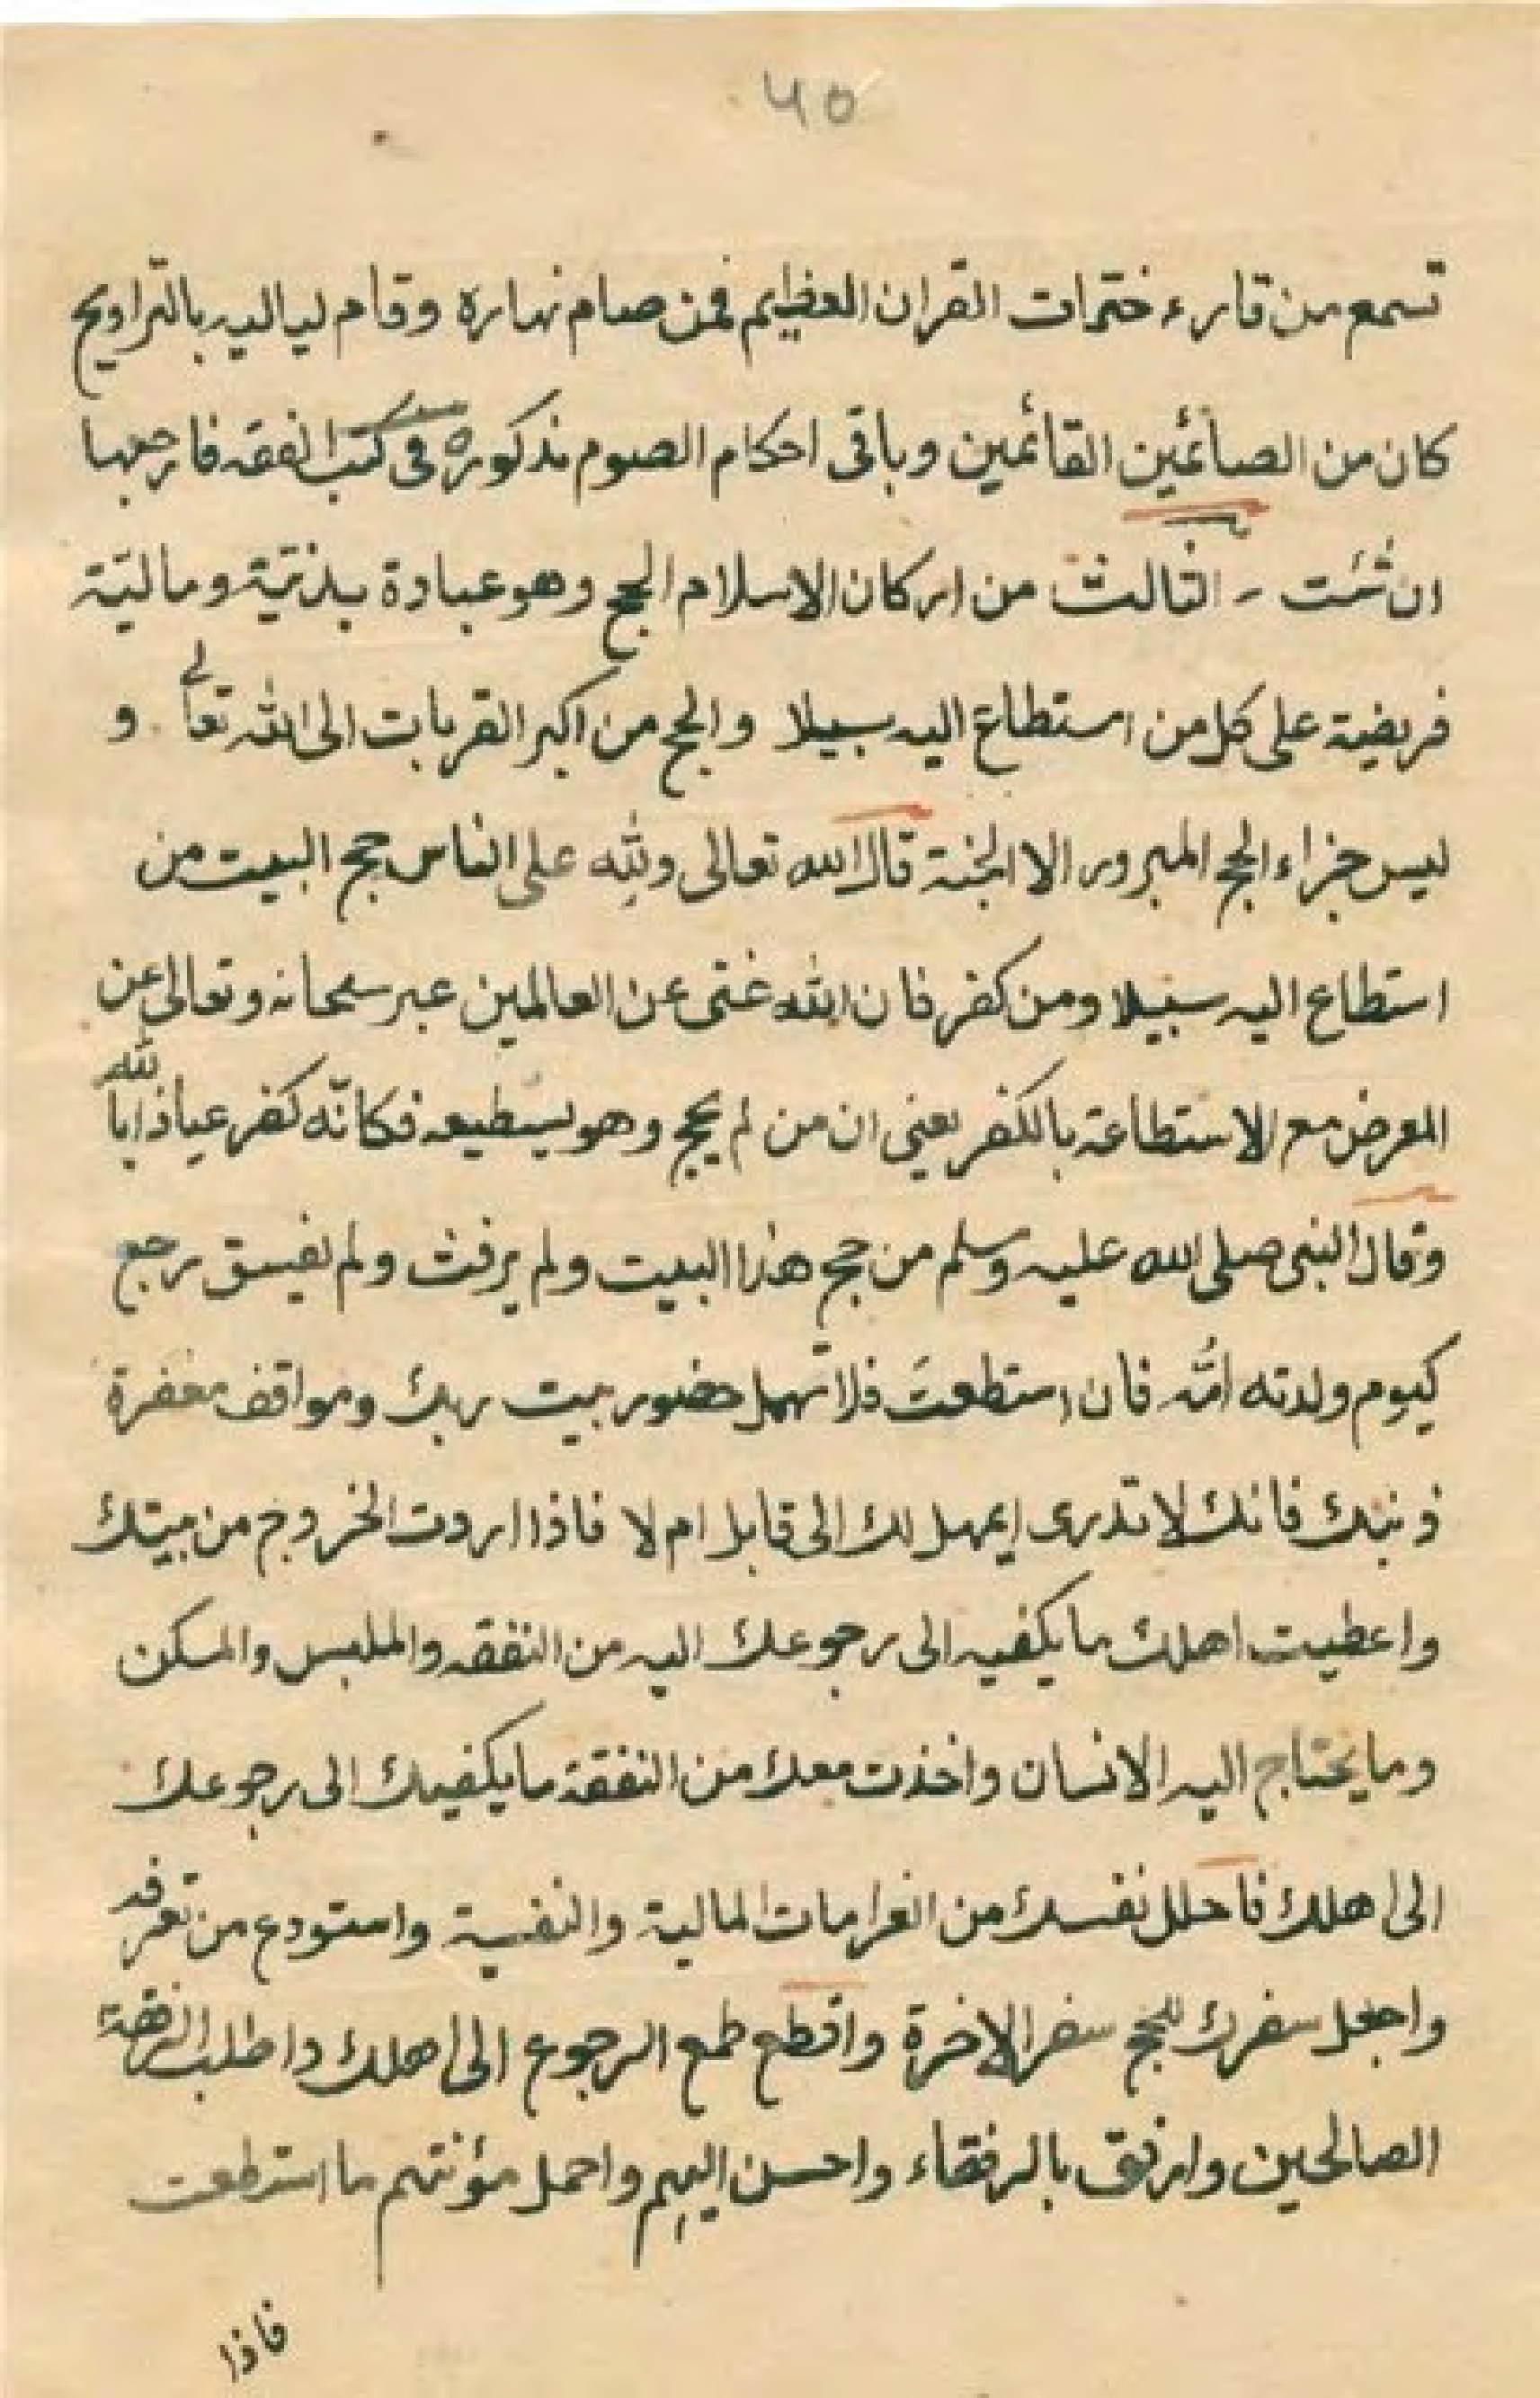 ٤٥
تسمع من قارء ختمات القران العظيم فمن صام نهاره وقام لياليه بالتراويح
كان من الصائمين القائمين وباقى احكام الصوم مذكوره فى كتب الفقه فارجعها
ان شئت ـ الثالث من اركان الاسلام الحج وهو عبادة بدنيّة وماليّة
فريضة على كل من استطاع اليه سبيلا والحج من اكبر القربات الى الله تعالى و
ليس جزاء الحج المبرور الا الجنة قال الله تعالى ولله على الناس حج البيت من
استطاع اليه سبيلا ومن كفر فان الله غنى عن العالمين عبر سبحانه وتعالى عن
المعرض مع الاستطاعة بالكفر يعنى ان من لم يحج وهو يسطيعه فكانّه كفر عياذا بالله
وقال النبى صلى الله عليه وسلم من حج هذا البيت ولم يرفث ولم يفسق رجع
كيوم ولدته امّه فان استطعتَ فلا تهمل حضور بيت ربك ومواقف مغفرة
ذنبك فانك لا تدرى ايمهل لك الى قابل ام لا فاذا اردت الخروج من بيتك
واعطيت اهلك ما يكفيه الى رجوعك اليه من النفقه والملبس والمسكن
وما يحتاج اليه الانسان واخذت معك من النفقة ما يكفيك الى رجوعك
الى اهلك فاحلل نفسك من الغرامات المالية والنفسية واستودع من تعرفه
واجعل سفرك للحج سفر الاخرة واقطع طمع الرجوع الى اهلك واطلب الرفقة
الصالحين وارفق بالرفقاء واحسن اليهم واحمل مؤنتهم ما استطعت
فاذا